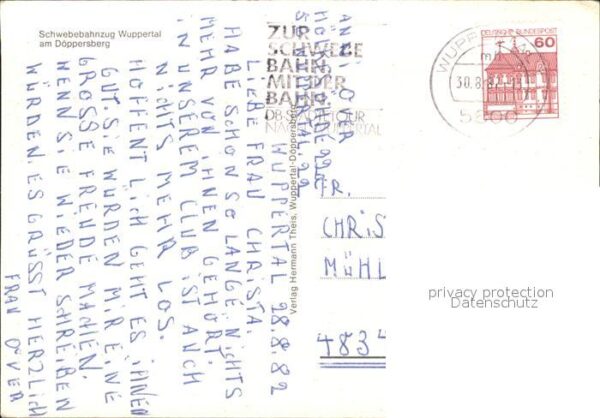 Schwebebahnzug Wuppertal
am Döppersberg
ZUR
SCHWEBE
BAHN
MIT DER
BAHN.
DB STÄDTETOUR
NACH WUPPERTAL
WUPPERTAL
30.8.82
5600
DEUTSCHE BUNDESPOST
60
WUPPERTAL 28.8.82
LIEBE FRAU CHRISTA.
HABE SCHON SO LANGE NICHTS
MEHR VON IHNEN GEHÖRT.
IN UNSEREM CLUB IST AUCH
NICHTS MEHR LOS.
HOFFENTLICH GEHT ES IHNEN
GUT. SIE WÜRDEN MIR EINE
GROSSE FREUDE MACHEN.
WENN SIE WIEDER SCHREIBEN
WÜRDEN. ES GRÜSST HERZLICH
FRAU
Verlag Hermann Theis, Wuppertal-Döppersberg
FR.
CHRIS
MÜHL
4834
privacy protection
Datenschutz